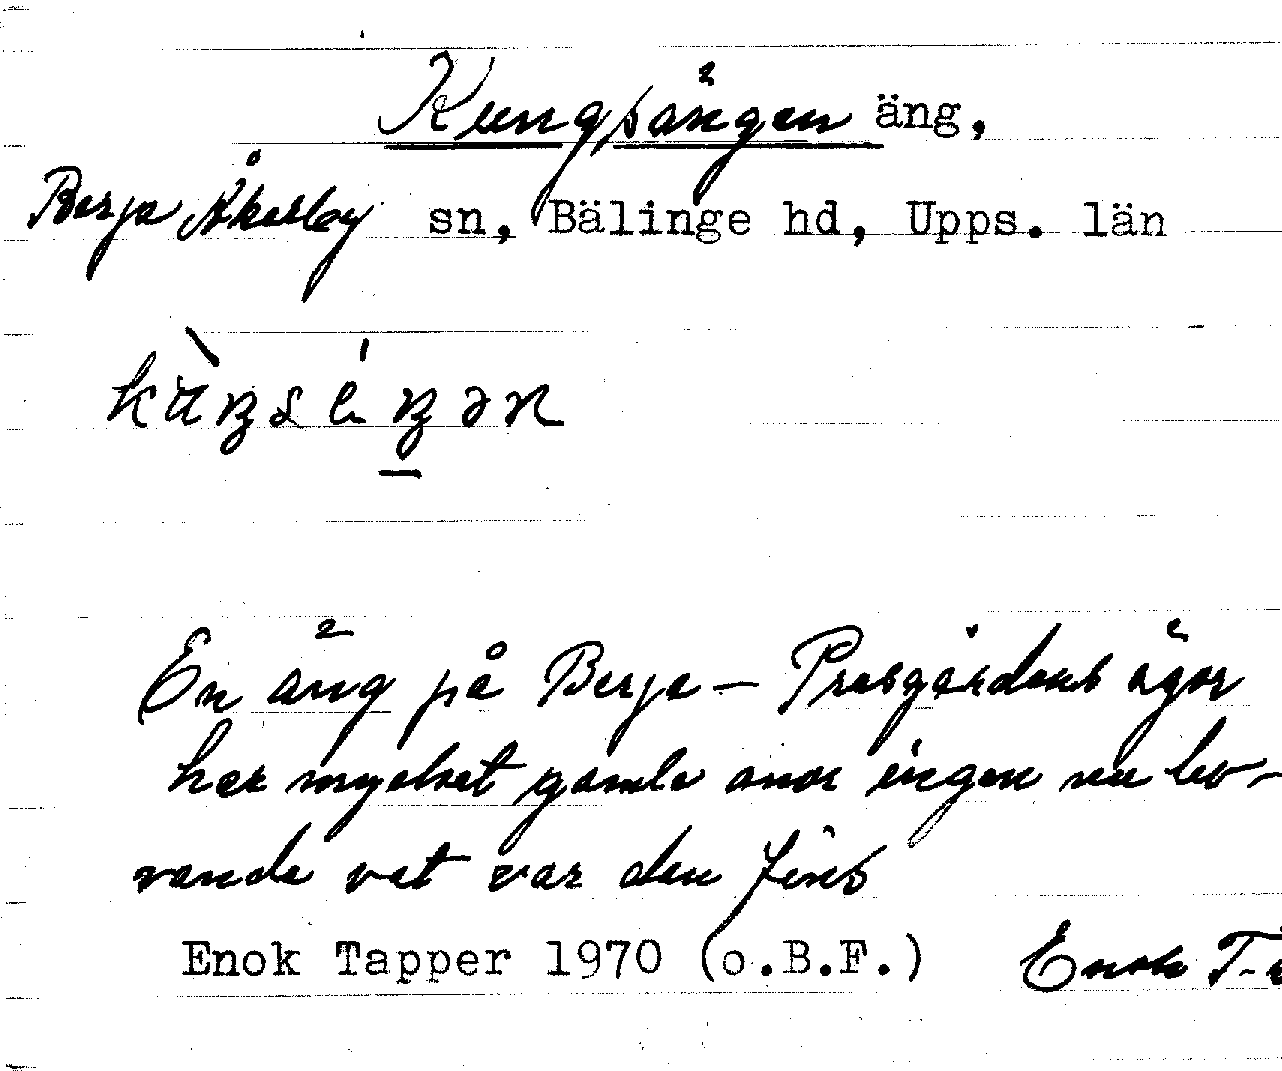 Kungsängen äng,
Berja Åkerby sn, Bälinge hd, Upps. län
En äng på Berja – Presgårdens ägor
har mycket gamla anor ingen nu lev-
vande vet var den fins
Enok Tapper 1970 (o.B.F.) Enok T-